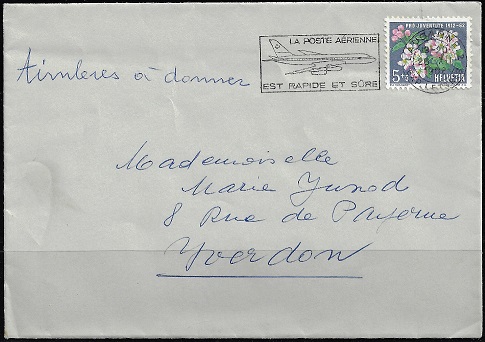 LA POSTE AÉRIENNE
EST RAPIDE ET SÛRE
PRO JUVENTUTE 1912-62
5+5 HELVETIA
Timbres à donner
Mademoiselle
Marie Junod
8 Rue de Payerne
Yverdon